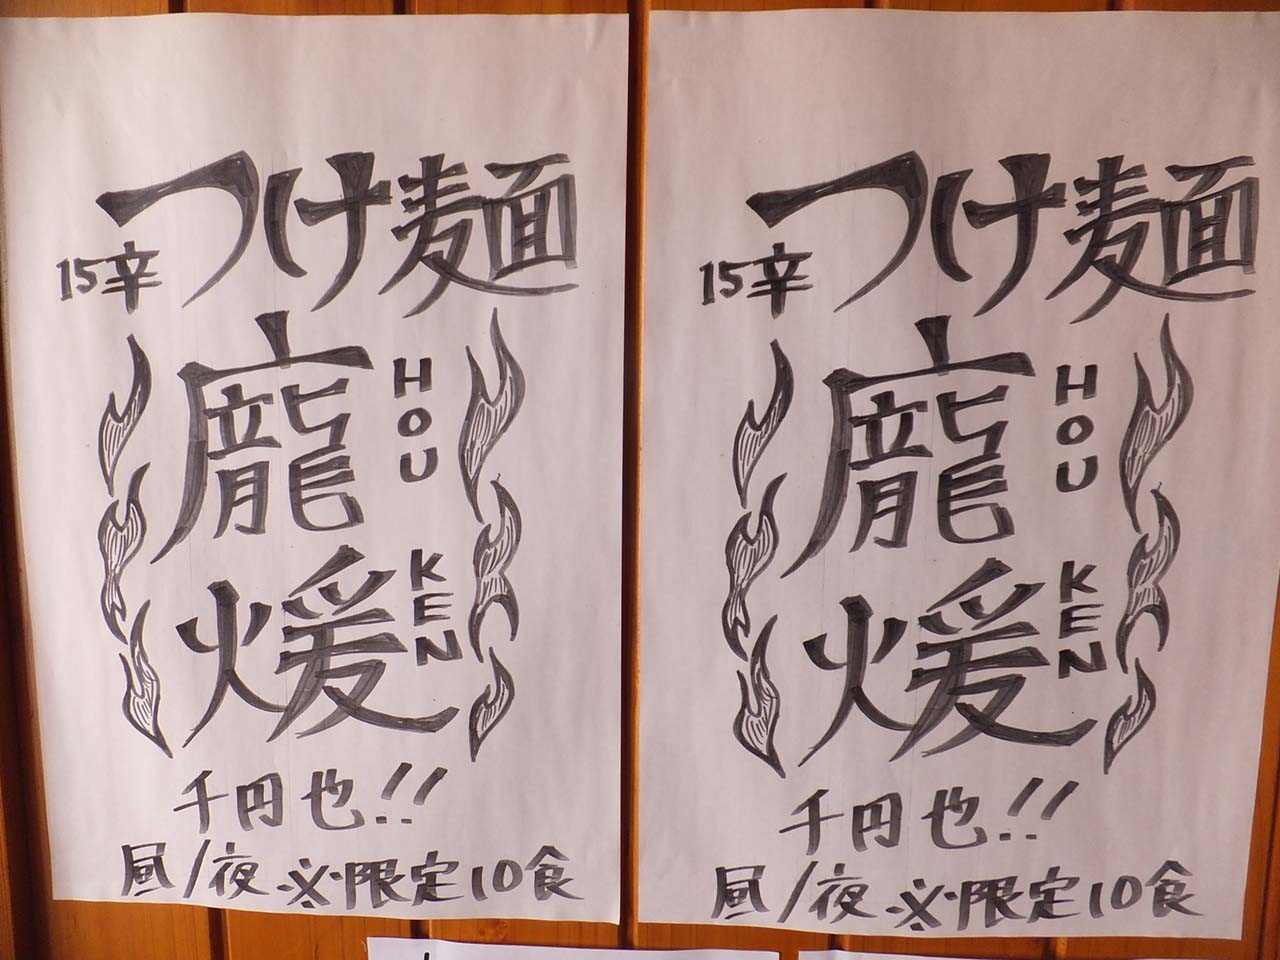 つけ麺
15辛
龐煖
HOU
KEN
千円也!!
昼/夜 ※限定10食
つけ麺
15辛
龐煖
HOU
KEN
千円也!!
昼/夜 ※限定10食